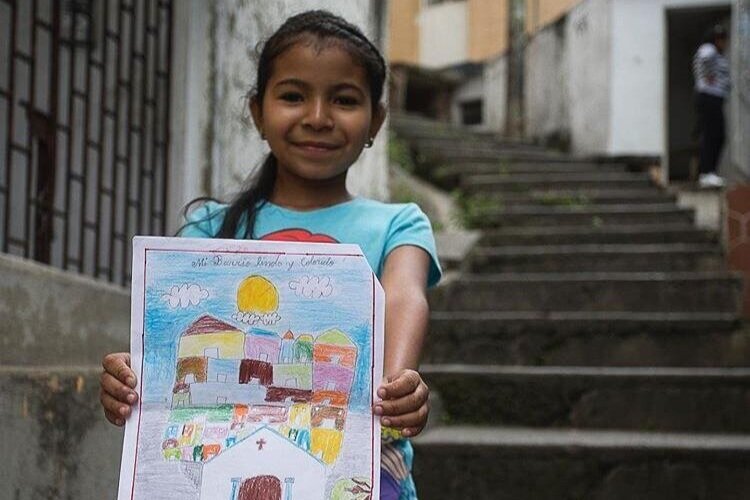 Mi Barrio lindo y Colorido